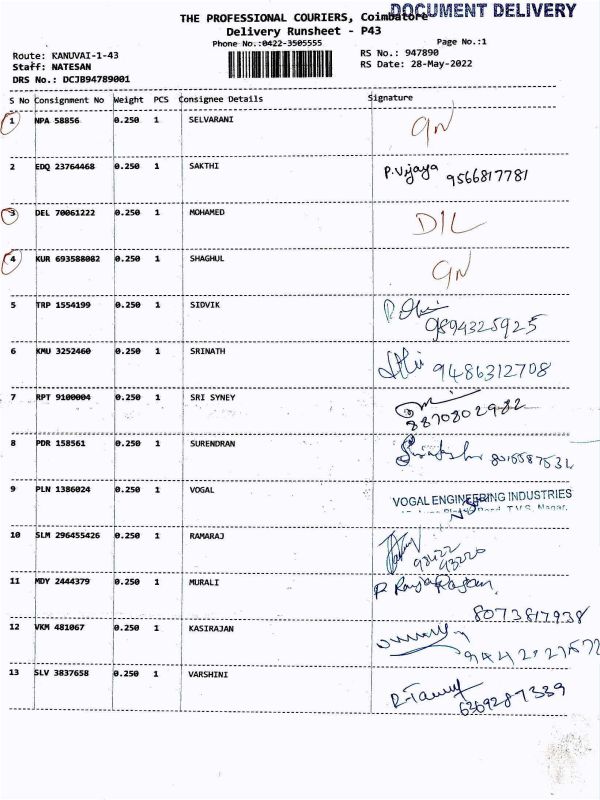 DOCUMENT DELIVERY
THE PROFESSIONAL COURIERS, Coimbatore
Delivery Runsheet - P43
Phone No.:0422-3505555
Page No.:1
Route: KANUVAI-1-43
RS No.: 947890
Staff: NATESAN
RS Date: 28-May-2022
DRS No.: DCJB94789001
S No Consignment No Weight PCS Consignee Details Signature
1 NPA 58856 0.250 1 SELVARANI
2 EDQ 23764468 0.250 1 SAKTHI P.Vijaya 9566817781
3 DEL 70061222 0.250 1 MOHAMED D/L
4 KUR 693588082 0.250 1 SHAGHUL
5 TRP 1554199 0.250 1 SIDVIK 9894325925
6 KMU 3252460 0.250 1 SRINATH 9486312708
7 RPT 9100004 0.250 1 SRI SYNEY 8870802982
8 PDR 158561 0.250 1 SURENDRAN
9 PLN 1386024 0.250 1 VOGAL VOGAL ENGINEERING INDUSTRIES
T.V.S. Nagar,
10 SLM 296455426 0.250 1 RAMARAJ 93422
43220
11 MDY 2444379 0.250 1 MURALI
8073817938
12 VKM 481067 0.250 1 KASIRAJAN
13 SLV 3837658 0.250 1 VARSHINI 6369287339